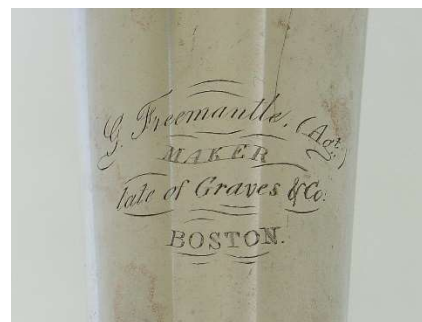 G. Freemantle, (Agt.)
MAKER
late of Graves & Co.
BOSTON.